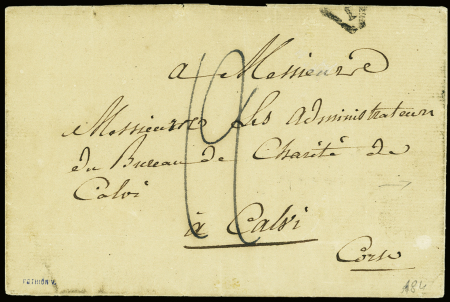 a Messieurs
Messieurs Les administrateurs
du Bureau de Charité de
Calvi
à Calvi
Corse
184